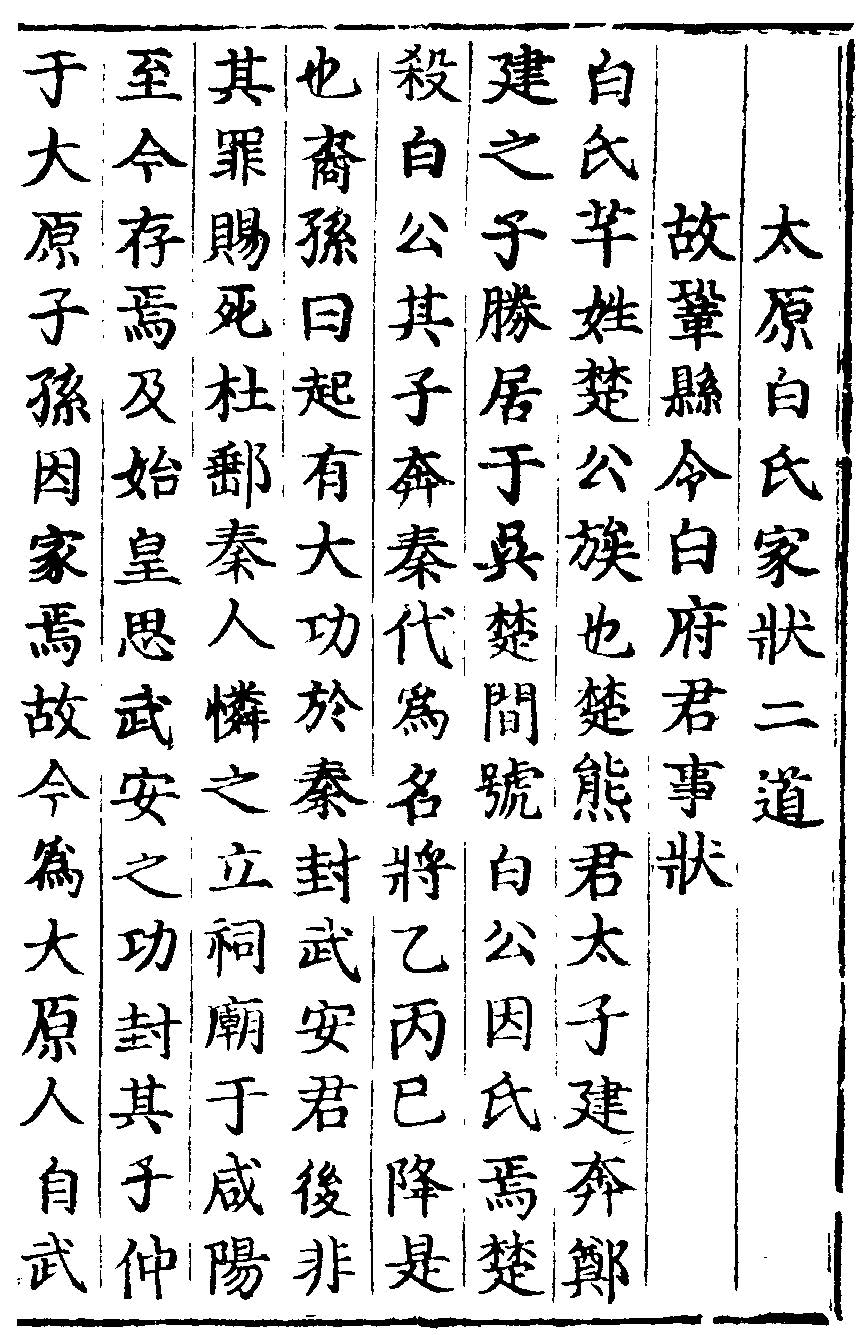 太原白氏家狀二道
故鞏縣令白府君事狀
白氏芊姓楚公族也楚熊君太子建奔鄭
建之子勝居于吳楚間號白公因氏焉楚
殺白公其子奔秦代爲名將乙丙已降是
也裔孫曰起有大功於秦封武安君後非
其罪賜死杜郵秦人憐之立祠廟于咸陽
至今存焉及始皇思武安之功封其子仲
于大原子孫因家焉故今爲大原人自武